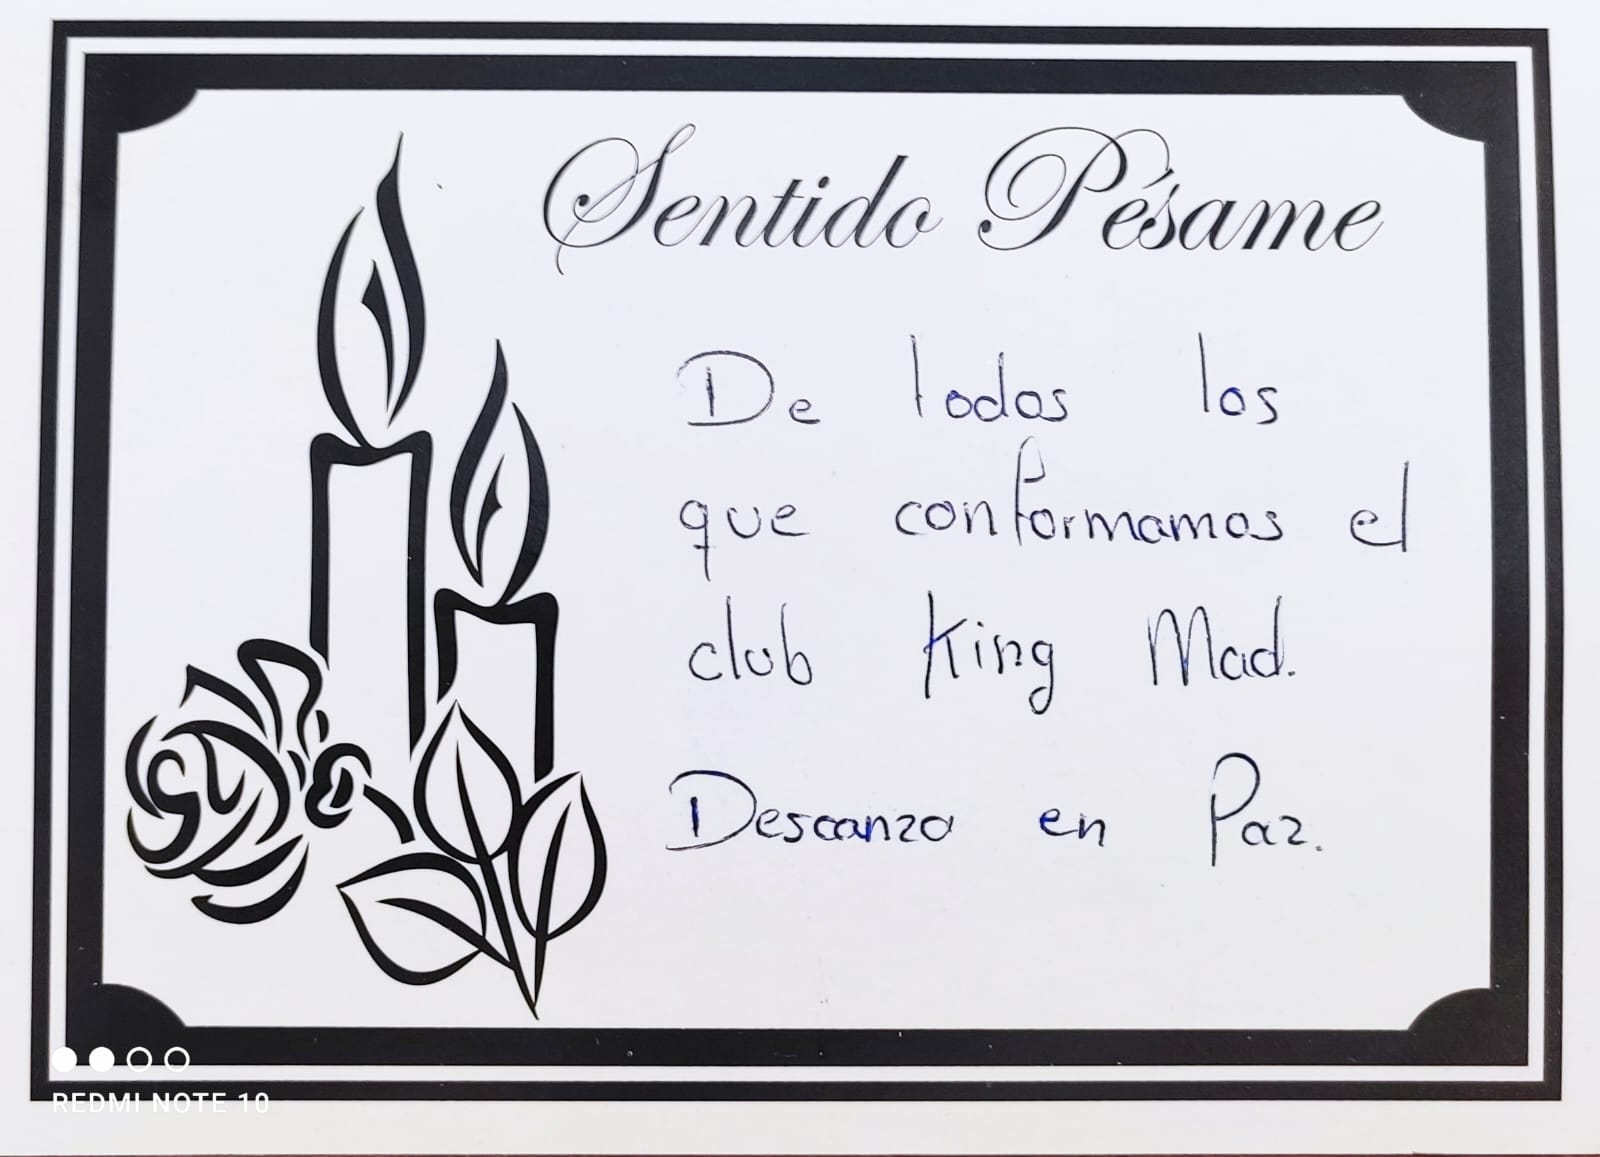 Sentido Pésame
De todos los
que conformamos el
club King Mad.
Descanza en Paz.
REDMI NOTE 10